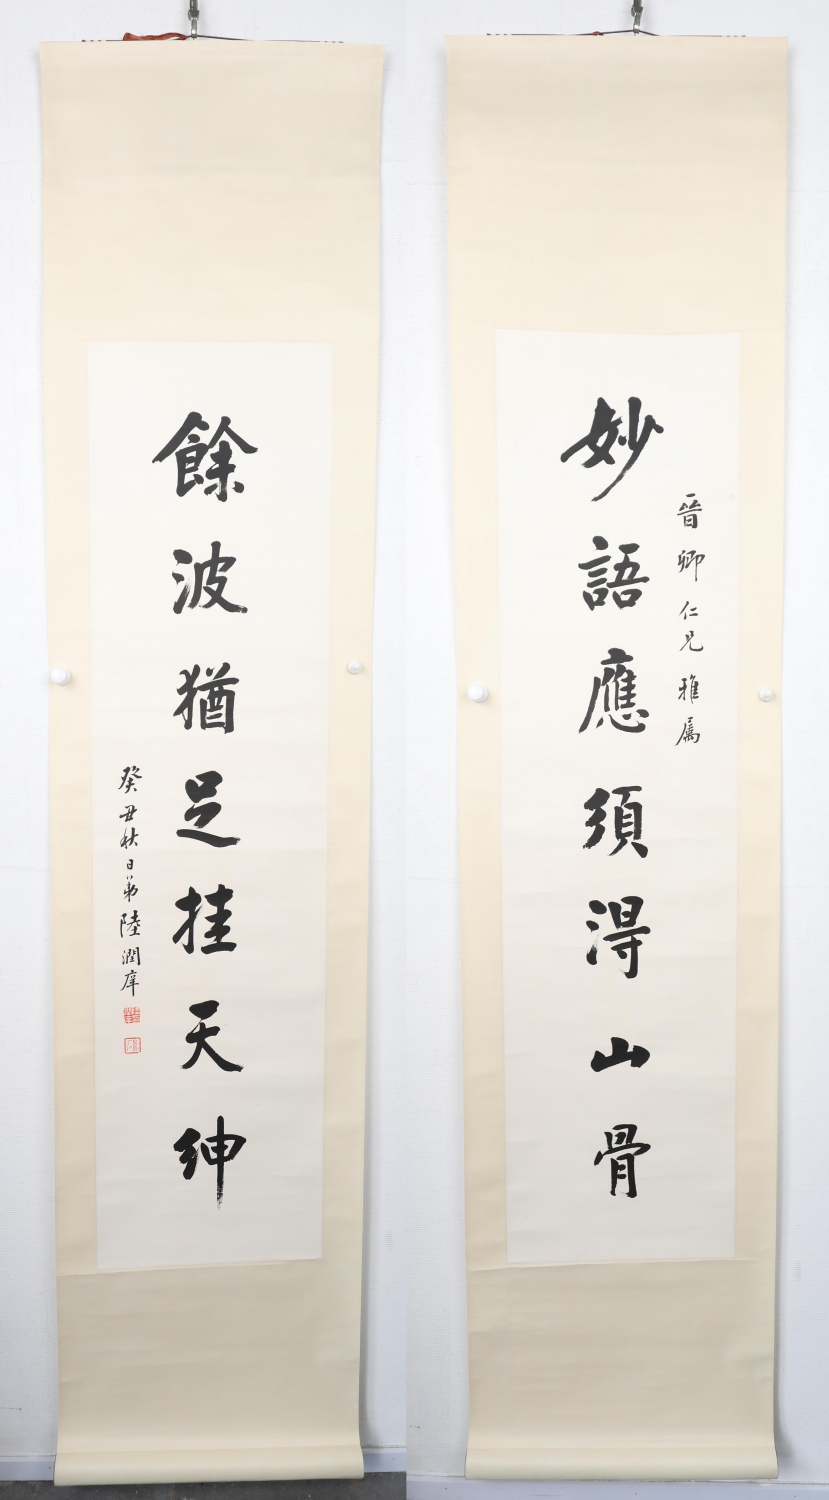 晉卿仁兄雅属
妙語應須得山骨
餘波猶足挂天紳
癸丑秋日弟陸潤庠